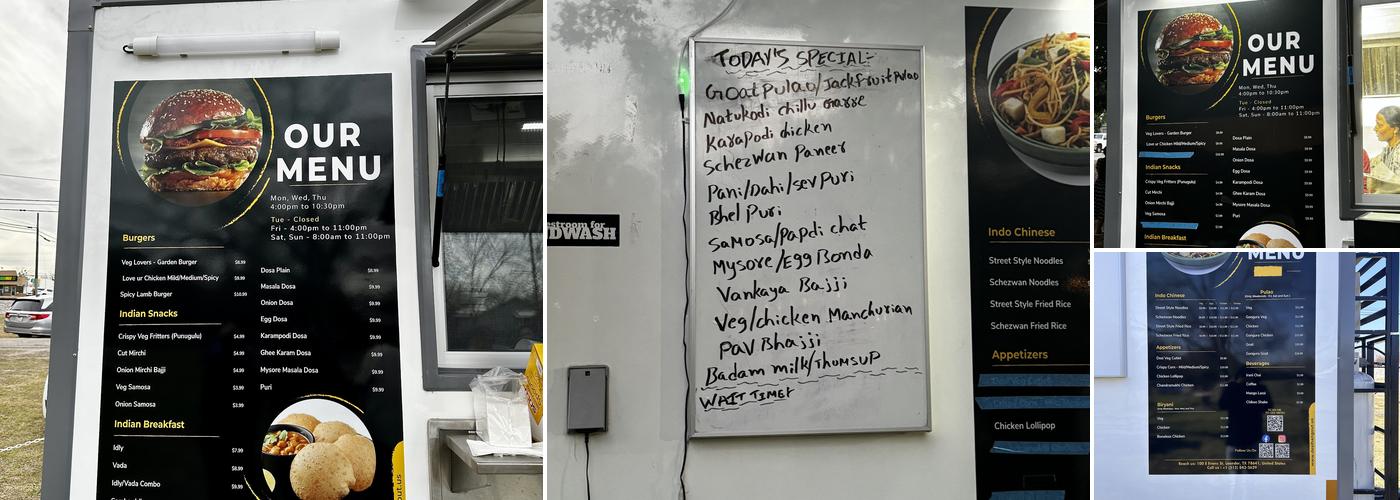 OUR
MENU
Mon, Wed, Thu
4:00pm to 10:30pm
Tue - Closed
Fri - 4:00pm to 11:00pm
Sat, Sun - 8:00am to 11:00pm
Burgers
Veg Lovers - Garden Burger $8.99
Love ur Chicken Mild/Medium/Spicy $9.99
Spicy Lamb Burger $10.99
Indian Snacks
Crispy Veg Fritters (Punugulu) $4.99
Cut Mirchi $4.99
Onion Mirchi Bajji $4.99
Veg Samosa $3.99
Onion Samosa $3.99
Indian Breakfast
Idly $7.99
Vada $8.99
Idly/Vada Combo $9.99
Dosa Plain $8.99
Masala Dosa $9.99
Onion Dosa $9.99
Egg Dosa $9.99
Karampodi Dosa $9.99
Ghee Karam Dosa $9.99
Mysore Masala Dosa $9.99
Puri $9.99
TODAY'S SPECIAL:-
Goat Pulao/Jackfruit Pulao
Natukodi chillu
Karapodi chicken
Schezwan Paneer
Pani/Dahi/sev Puri
Bhel Puri
Samosa/Papdi chat
Mysore/Egg Bonda
Vankaya Bajji
Veg/chicken Manchurian
Pav Bhajji
Badam milk/Thumsup
WAIT TIME:
stroom for
DWASH
Indo Chinese
Street Style Noodles
Schezwan Noodles
Street Style Fried Rice
Schezwan Fried Rice
Appetizers
Chicken Lollipop
OUR
MENU
Mon, Wed, Thu
4:00pm to 10:30pm
Tue - Closed
Fri - 4:00pm to 11:00pm
Sat, Sun - 8:00am to 11:00pm
Burgers
Veg Lovers - Garden Burger
Love ur Chicken Mild/Medium/Spicy
Indian Snacks
Crispy Veg Fritters (Punugulu)
Cut Mirchi
Onion Mirchi Bajji
Veg Samosa
Indian Breakfast
Dosa Plain
Masala Dosa
Onion Dosa
Egg Dosa
Karampodi Dosa
Ghee Karam Dosa
Mysore Masala Dosa
Puri
MENU
Indo Chinese
Street Style Noodles
Schezwan Noodles
Street Style Fried Rice
Schezwan Fried Rice
Appetizers
Desi Veg Cutlet
Crispy Corn - Mild/Medium/Spicy
Chicken Lollipop
Chandramukhi Chicken
Biryani
Veg
Chicken
Boneless Chicken
Pulao
Veg
Gongura Veg
Chicken
Gongura Chicken
Goat
Gongura Goat
Beverages
Irani Chai
Coffee
Mango Lassi
Chikoo Shake
Follow Us On